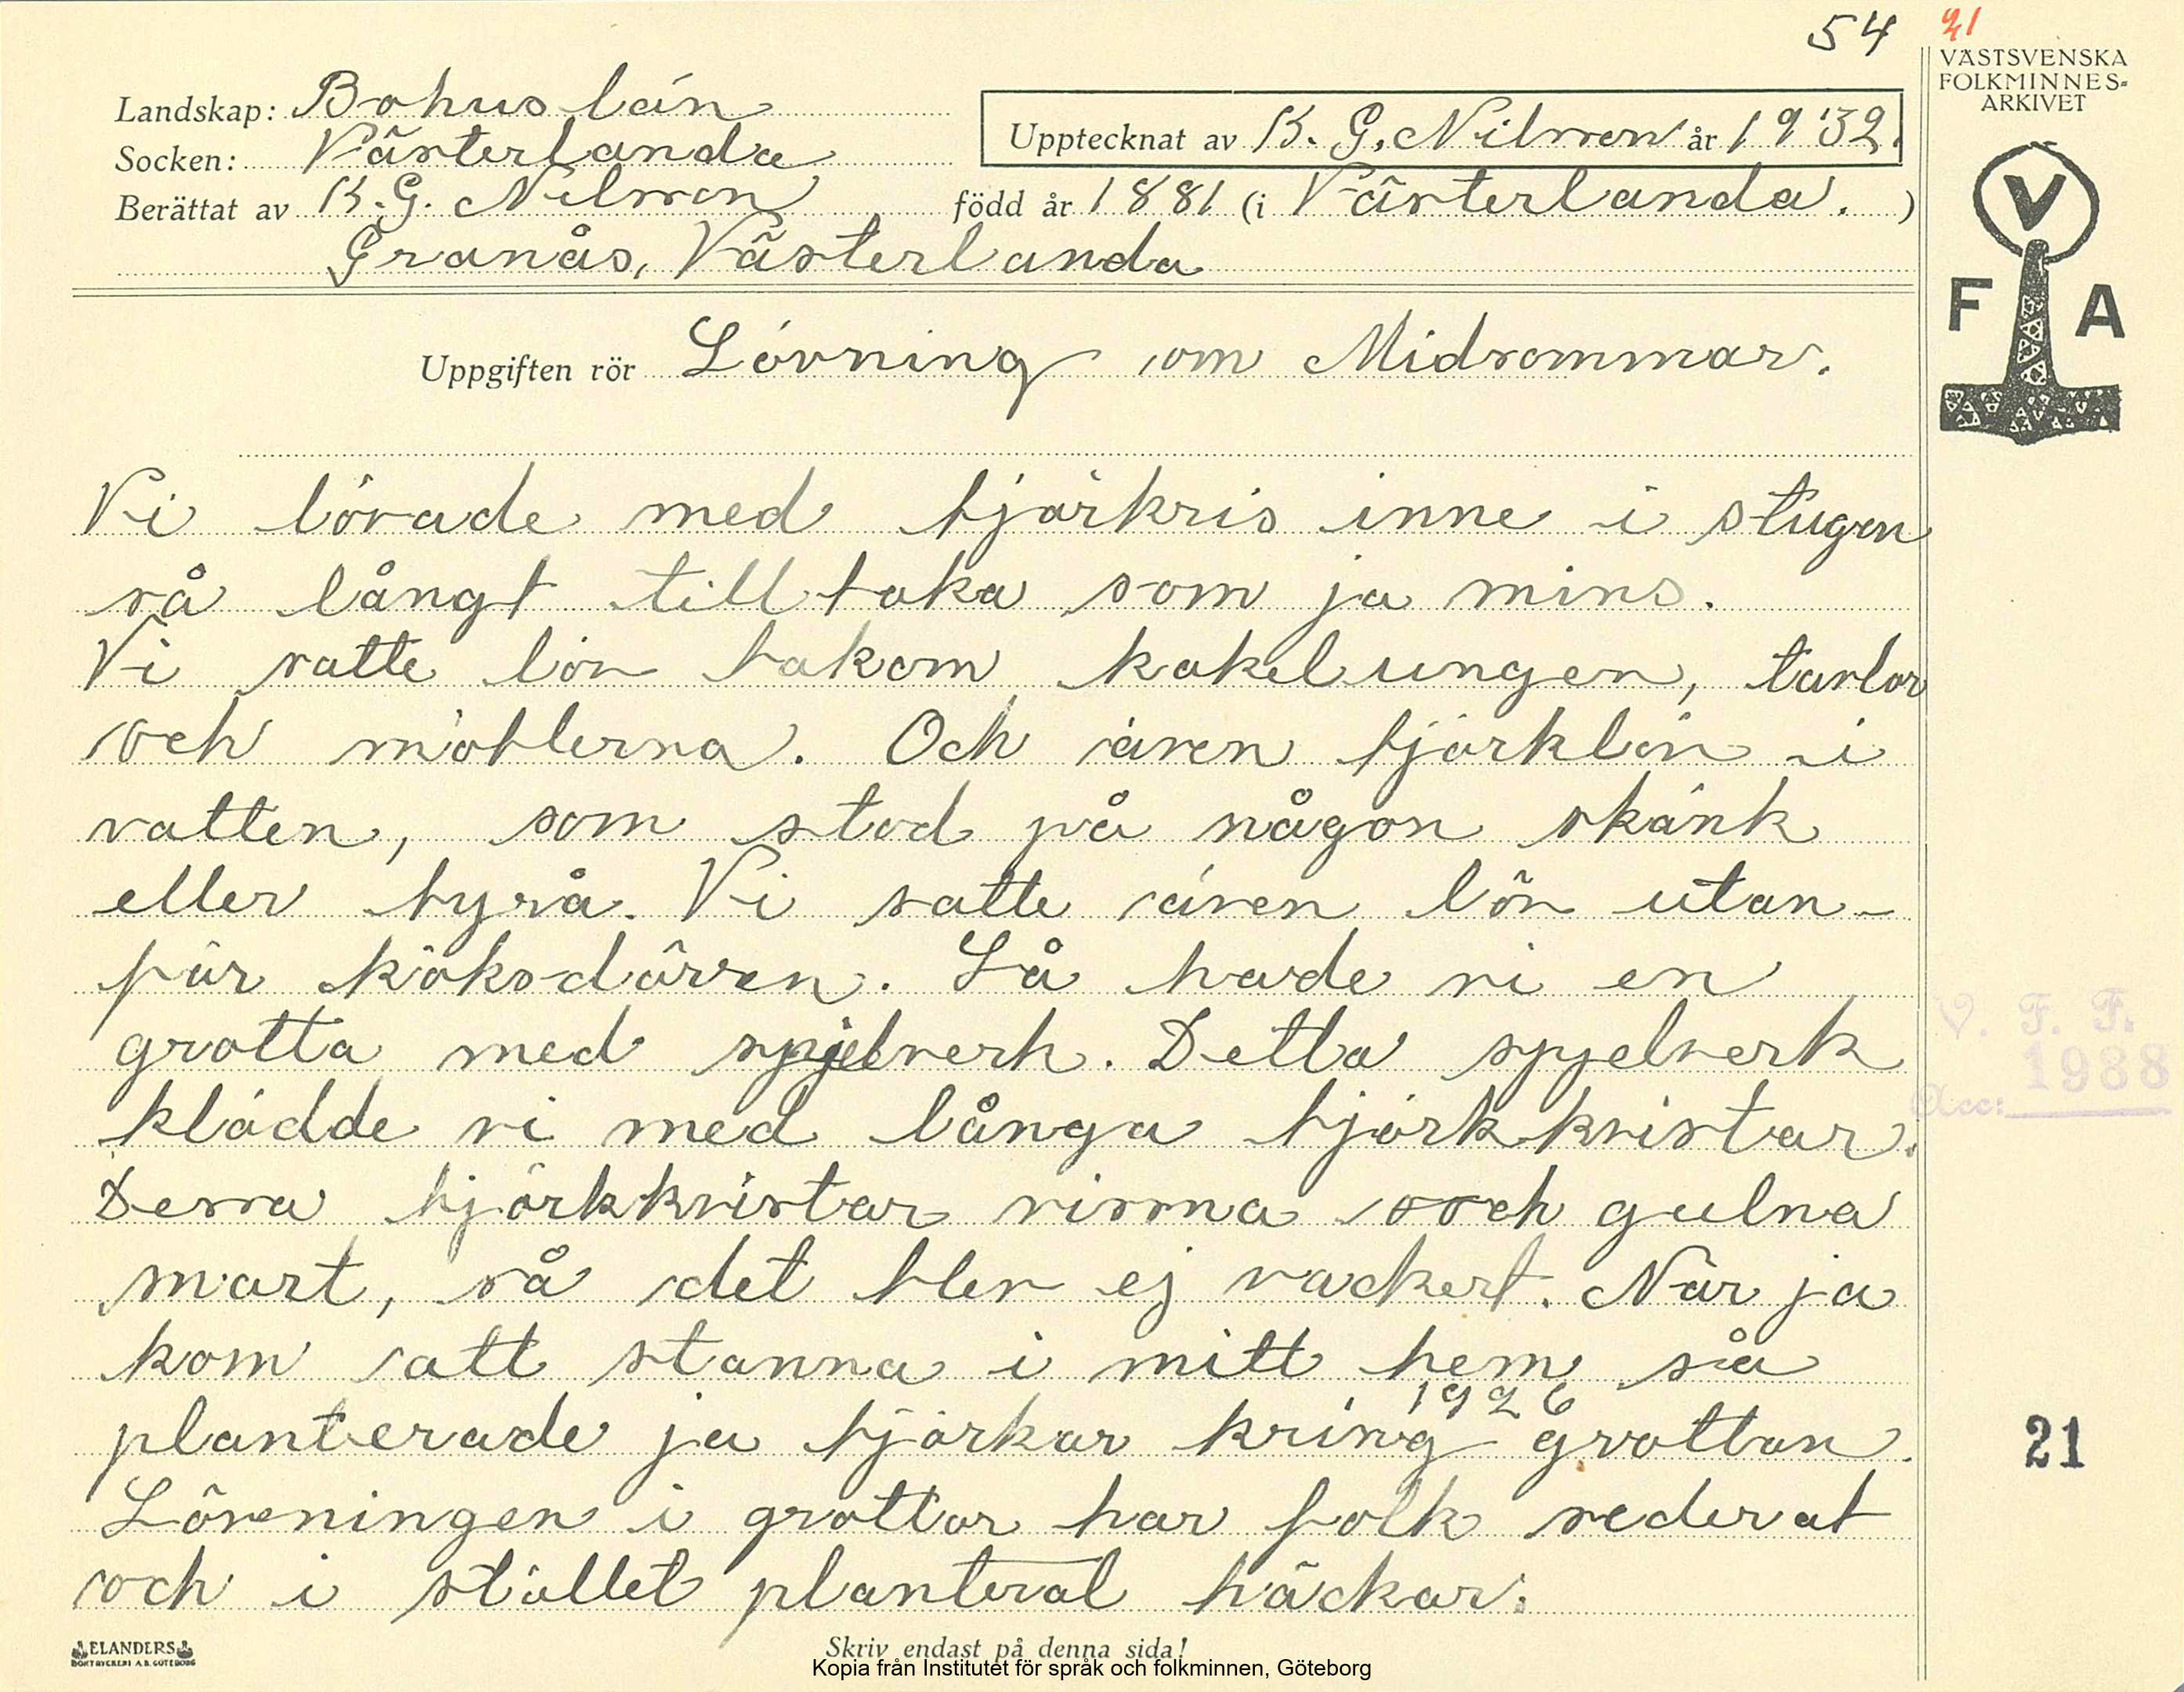 54 21
VÄSTSVENSKA
FOLKMINNES-
ARKIVET
Landskap: Bohuslän
Upptecknat av K. G. Nilsson år 1932.
Socken: Västerlanda
Berättat av K. G. Nilsson född år 1881 (i Västerlanda.)
Granås, Västerlanda
V
F A
Uppgiften rör Lövning om Midsommar.
Vi lövade med björkris inne i stugon
så långt tillbaka som ja mins.
Vi satte löv bakom kakelungen, tavlor
och möblerna. Och även björklöv i
vatten, som stod på någon skänk
eller byrå. Vi satte även löv utan-
för köksdörren. Så hade vi en
grotta med spjelverk. Detta spjelverk
klädde vi med långa björkkvistar.
Dessa björkkvistar vissna och gulna
snart, så det blev ej vackert. När ja
kom att stanna i mitt hem så
planterade ja björkar kring 1926 grottan.
Lövningen i grottor har folk
och i stället planterat häckar.
V. F. F.
1988
Acc:
21
ELANDERS
BOKTRYCKERI A.B. GÖTEBORG
Skriv endast på denna sida!
Kopia från Institutet för språk och folkminnen, Göteborg